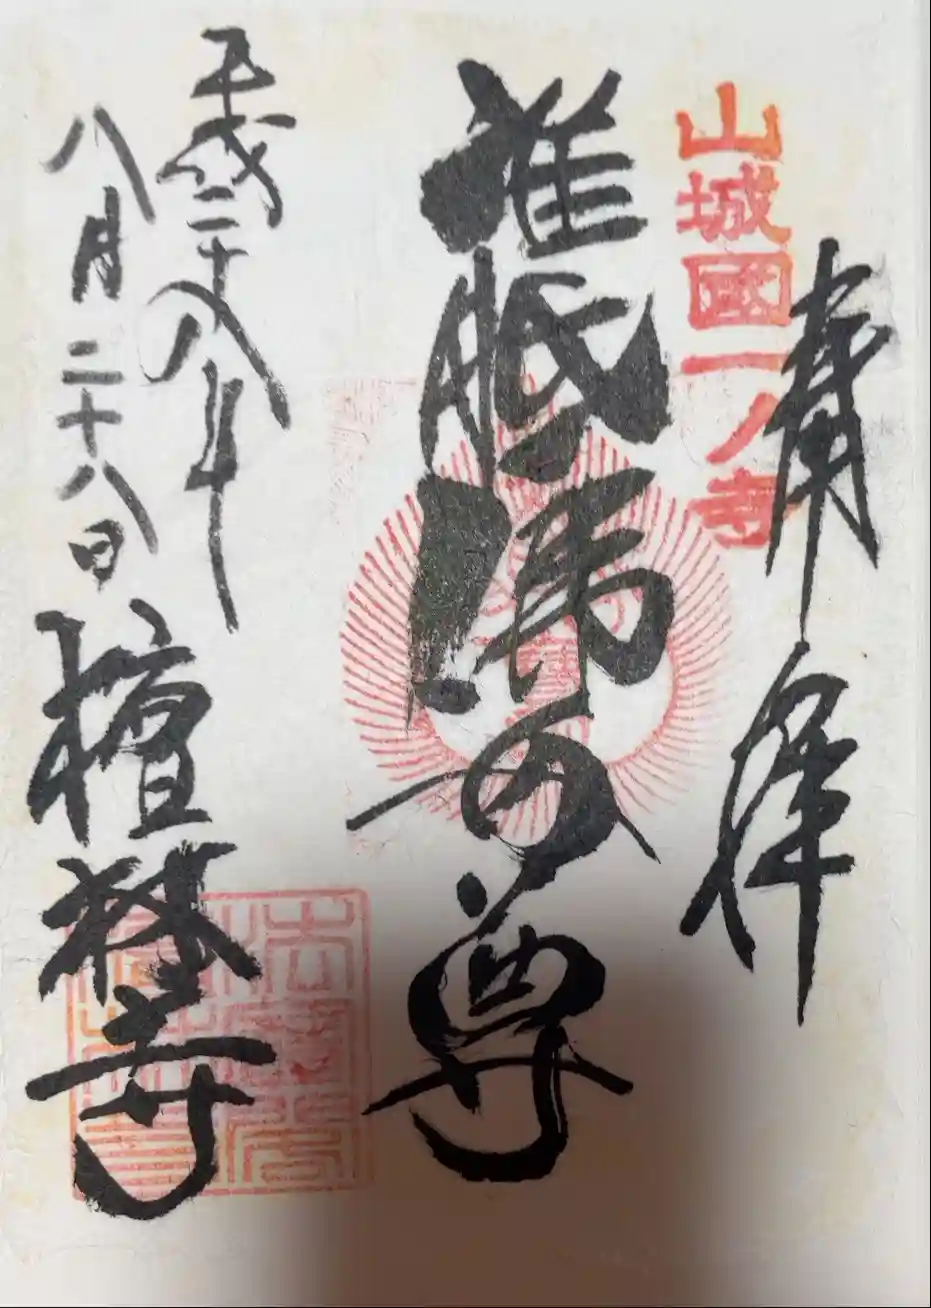 奉拝
山城國一ノ寺
准胝沸母尊
平成二十八年
八月二十八日
檀林寺